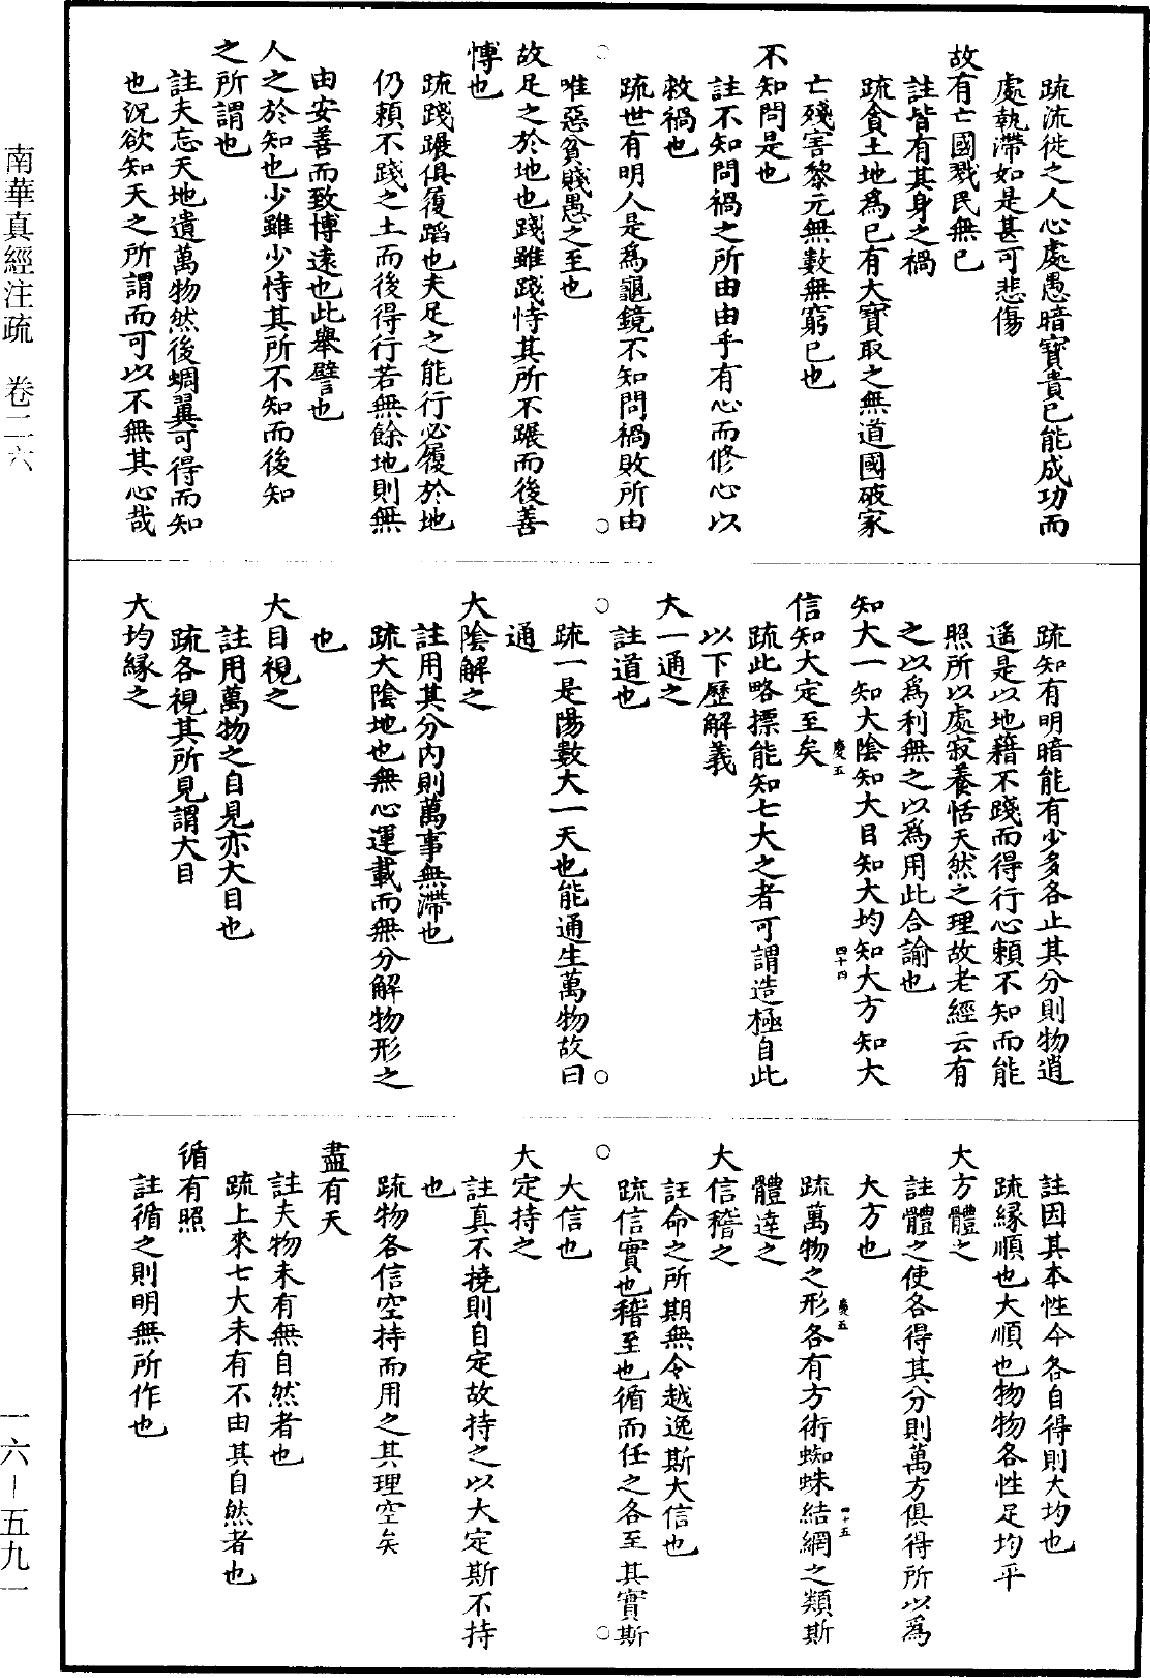 疏流徙之人心處愚暗寶貴已能成功而
處執滯如是甚可悲傷
故有亡國戮民無已
註皆有其身之禍
疏貪土地爲已有大寶取之無道國破家
亡殘害黎元無數無窮已也
不知問是也
註不知問禍之所由由乎有心而修心以
救禍也
疏世有明人是爲龜鏡不知問禍敗所由
唯惡貧賤愚之至也
故足之於地也踐雖踐恃其所不蹍而後善
愽也
疏踐蹍俱履蹈也夫足之能行必履於地
仍賴不踐之土而後得行若無餘地則無
由安善而致博遠也此舉譬也
人之於知也少雖少恃其所不知而後知
之所謂也
註夫忘天地遺萬物然後蜩翼可得而知
也況欲知天之所謂而可以不無其心哉
疏知有明暗能有少多各止其分則物逍
遥是以地籍不踐而得行心賴不知而能
照所以處寂養恬天然之理故老經云有
之以爲利無之以爲用此合諭也
知大一知大陰知大目知大均知大方知大
信知大定至矣
慶五
四十四
疏此略摽能知七大之者可謂造極自此
以下歷解義
大一通之
註道也
疏一是陽數大一天也能通生萬物故曰
通
大陰解之
註用其分內則萬事無滯也
疏大陰地也無心運載而無分解物形之
也
大目視之
註用萬物之自見亦大目也
疏各視其所見謂大目
大均緣之
註因其本性令各自得則大均也
疏緣順也大順也物物各性足均平
大方體之
註體之使各得其分則萬方俱得所以爲
大方也
疏萬物之形各有方術蜘蛛結網之類斯
慶五
四十五
體達之
大信稽之
註命之所期無令越逸斯大信也
疏信實也稽至也循而任之各至其實斯
大信也
大定持之
註真不撓則自定故持之以大定斯不持
也
疏物各信空持而用之其理空矣
盡有天
註夫物未有無自然者也
疏上來七大未有不由其自然者也
循有照
註循之則明無所作也
南華真經注疏 卷二六
一六－五九一